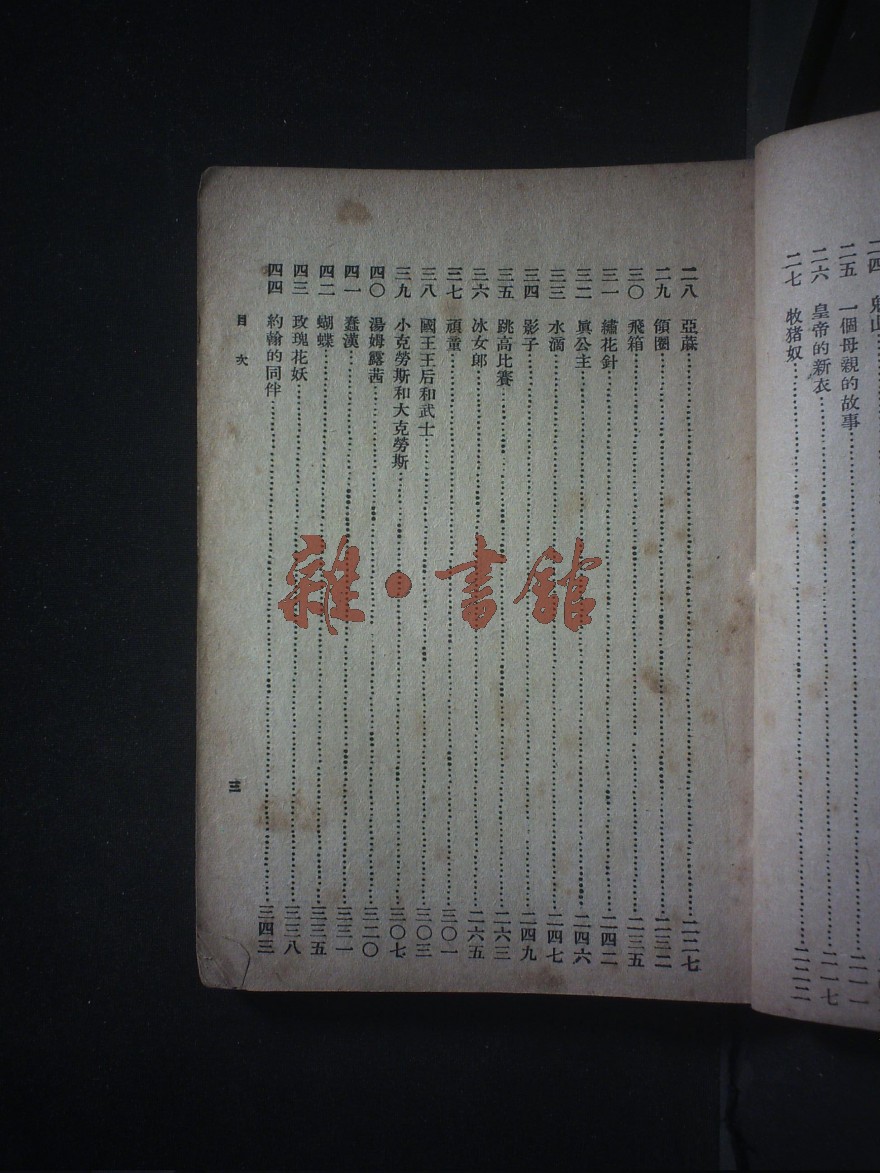 二四 鬼山
二五 一個母親的故事 二一一
二六 皇帝的新衣 二一七
二七 牧猪奴 二二二
二八 亞蔴 二二七
二九 領圈 二三二
三〇 飛箱 二三五
三一 繡花針 二四二
三二 眞公主 二四六
三三 水滴 二四七
三四 影子 二四九
三五 跳高比賽 二六三
三六 冰女郎 二六五
三七 頑童 三〇一
三八 國王王后和武士 三〇三
三九 小克勞斯和大克勞斯 三〇七
四〇 湯姆露茜 三二〇
四一 蠢漢 三三一
四二 蝴蝶 三三五
四三 玫瑰花妖 三三八
四四 約翰的同伴 三四三
目次
三
雜·書舘